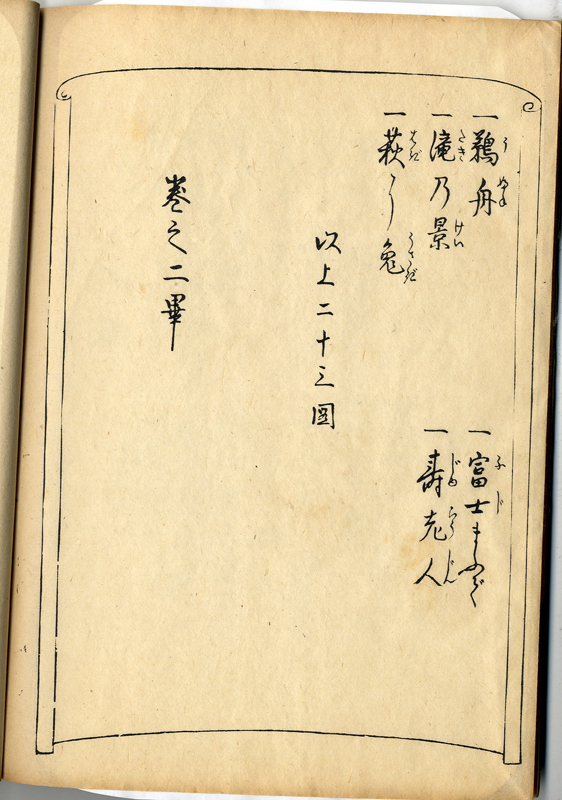 一鵜舟
一富士
一滝乃景
一壽老人
一萩に兎
以上二十三圖
巻之二畢